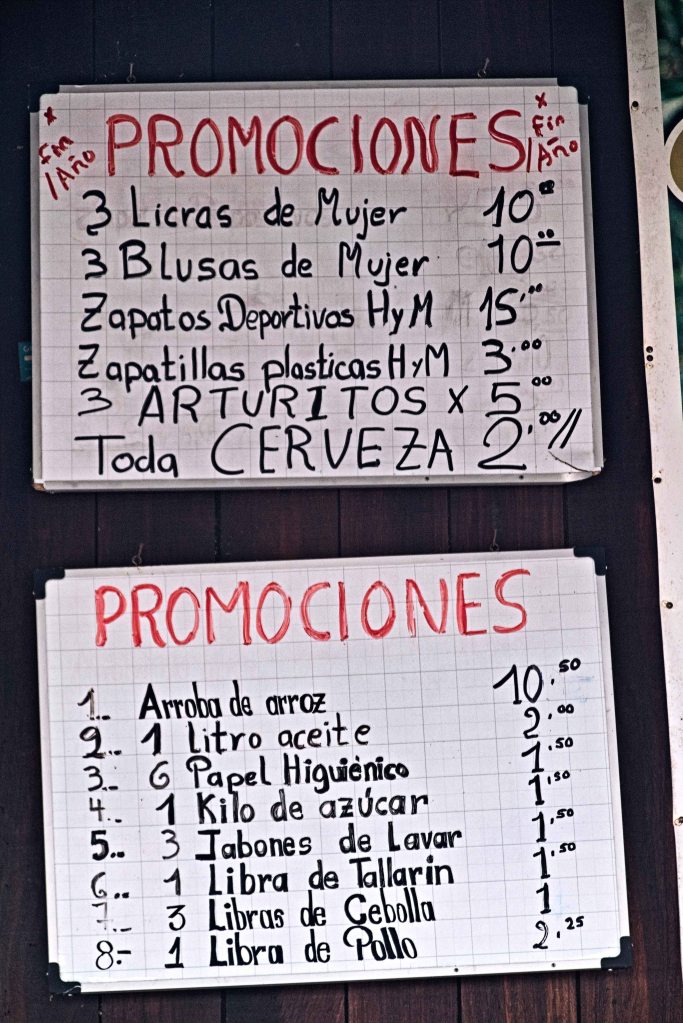 x Fin /Año PROMOCIONES x Fin /Año
3 Licras de Mujer 10.00
3 Blusas de Mujer 10.00
Zapatos Deportivos HyM 15.00
Zapatillas plasticas HyM 3.00
3 ARTURITOS X 5.00
Toda CERVEZA 2.00//
PROMOCIONES
1.. Arroba de arroz 10.50
2.. 1 litro aceite 2.00
3.. 6 Papel Higuiénico 1.50
4.. 1 Kilo de azúcar 1.50
5.. 3 Jabones de Lavar 1.50
6.. 1 Libra de Tallarin 1.50
7.. 3 Libras de Cebolla 1
8.- 1 Libra de Pollo 2.25